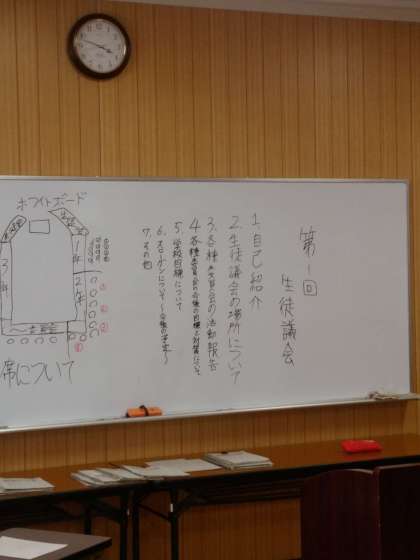 第1回
生徒議会
1.自己紹介
2.生徒議会の場所について
3.各種委員会の活動報告
4.各種委員会の今後の目標と対策について
5.学校目標について
6.スローガンについて~今後の予定~
7.その他
ホワイトボード
1年
2年
3年
席について